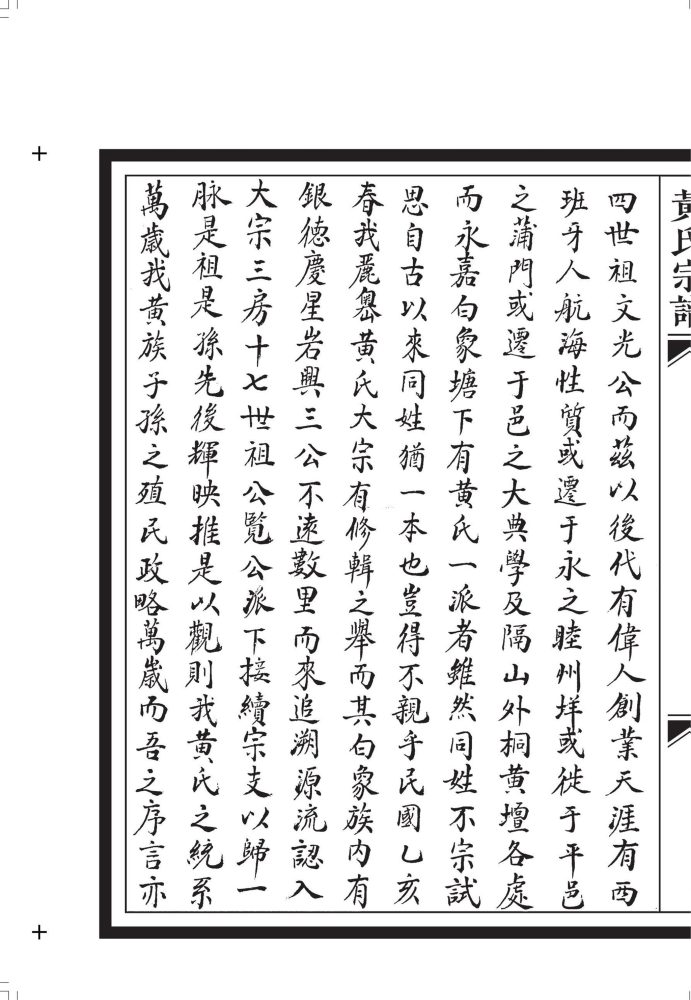 黃氏宗譜
四世祖文光公而茲以後代有偉人創業天涯有西
班牙人航海性質或遷于永之睦州垟或徙于平邑
之蒲門或遷于邑之大典學及隔山外桐黃壇各處
而永嘉白象塘下有黃氏一派者雖然同姓不宗試
思自古以來同姓猶一本也豈得不親乎民國乙亥
春我麗嶴黃氏大宗有修輯之舉而其白象族內有
銀德慶星岩興三公不遠數里而來追溯源流認入
大宗三房十七世祖公覽公派下接續宗支以歸一
脉是祖是孫先後輝映推是以觀則我黃氏之統系
萬歲我黃族子孫之殖民政略萬歲而吾之序言亦